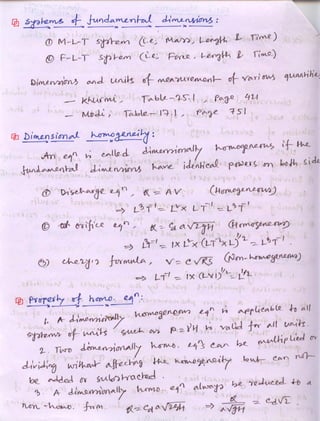 Systems of fundamental dimensions:
① M-L-T system (i.e, Mass, Length & Time)
② F-L-T system (i.e. Force. Length & Time)
Dimensions and units of measurement of various quantities
— Khurmi, Table-25.1, Page 421
— Modi, Table-17.1, Page 751
Dimensional homogeneity:
An eqn is called dimensionally homogeneous, if the
fundamental dimensions have identical powers on both side
① Discharge eqn, Q = AV (Homogeneous)
⇒ L³T⁻¹ = L² x LT⁻¹ = L³T⁻¹
② orifice eqn, a√2gH (Homogeneous)
⇒ = 1 x L² x (LT⁻² x L)^½ = L³T⁻¹.
③ chezy's formula, V = c√RS (Non-homogeneous)
⇒ LT⁻¹ = 1 x (L x 1)^½ = L^½
Property of homo. eqn:
1. A dimensionally homogeneous eqn is applicable to all
systems of units such as is valid for all units
2. Two dimensionally homo. eqs can be multiplied or
dividing without affecting the homogeneity but can not
be added or substracted.
3. A dimensionally homo. eqn always be reduced to a
non-homo. form. Q = Cd a√2gH ⇒ Q/a√gH = Cd√2